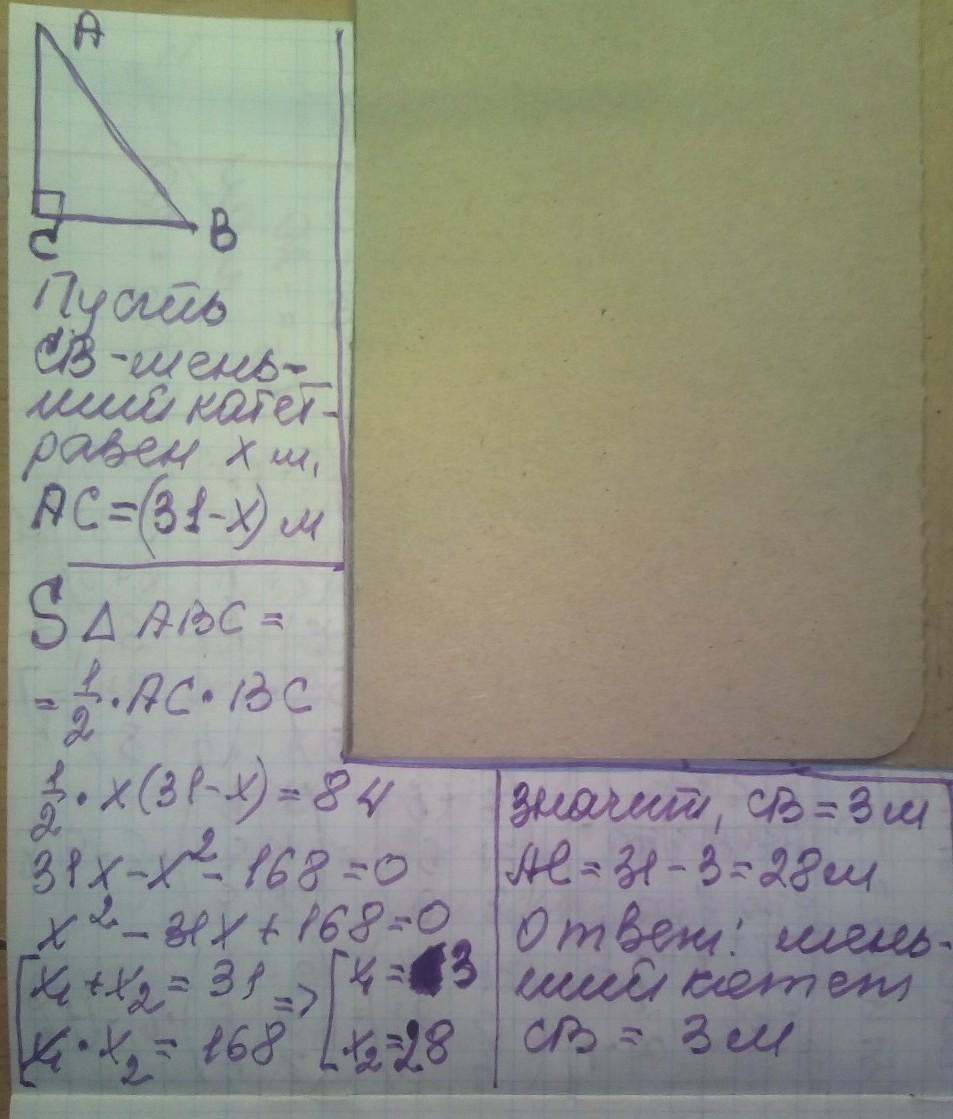 A
C
B
Пусть
CB-мень-
ший катет-
равен x м,
AC=(31-x) м
S △ ABC =
= 1/2 · AC · BC
1/2 · x(31-x) = 84
31x-x²-168=0
x²-31x+168=0
[x₁+x₂=31 => [x₁=3
x₁·x₂=168 x₂=28
значит, CB=3м
AC=31-3=28м
Ответ: мень-
ший катет
CB = 3м